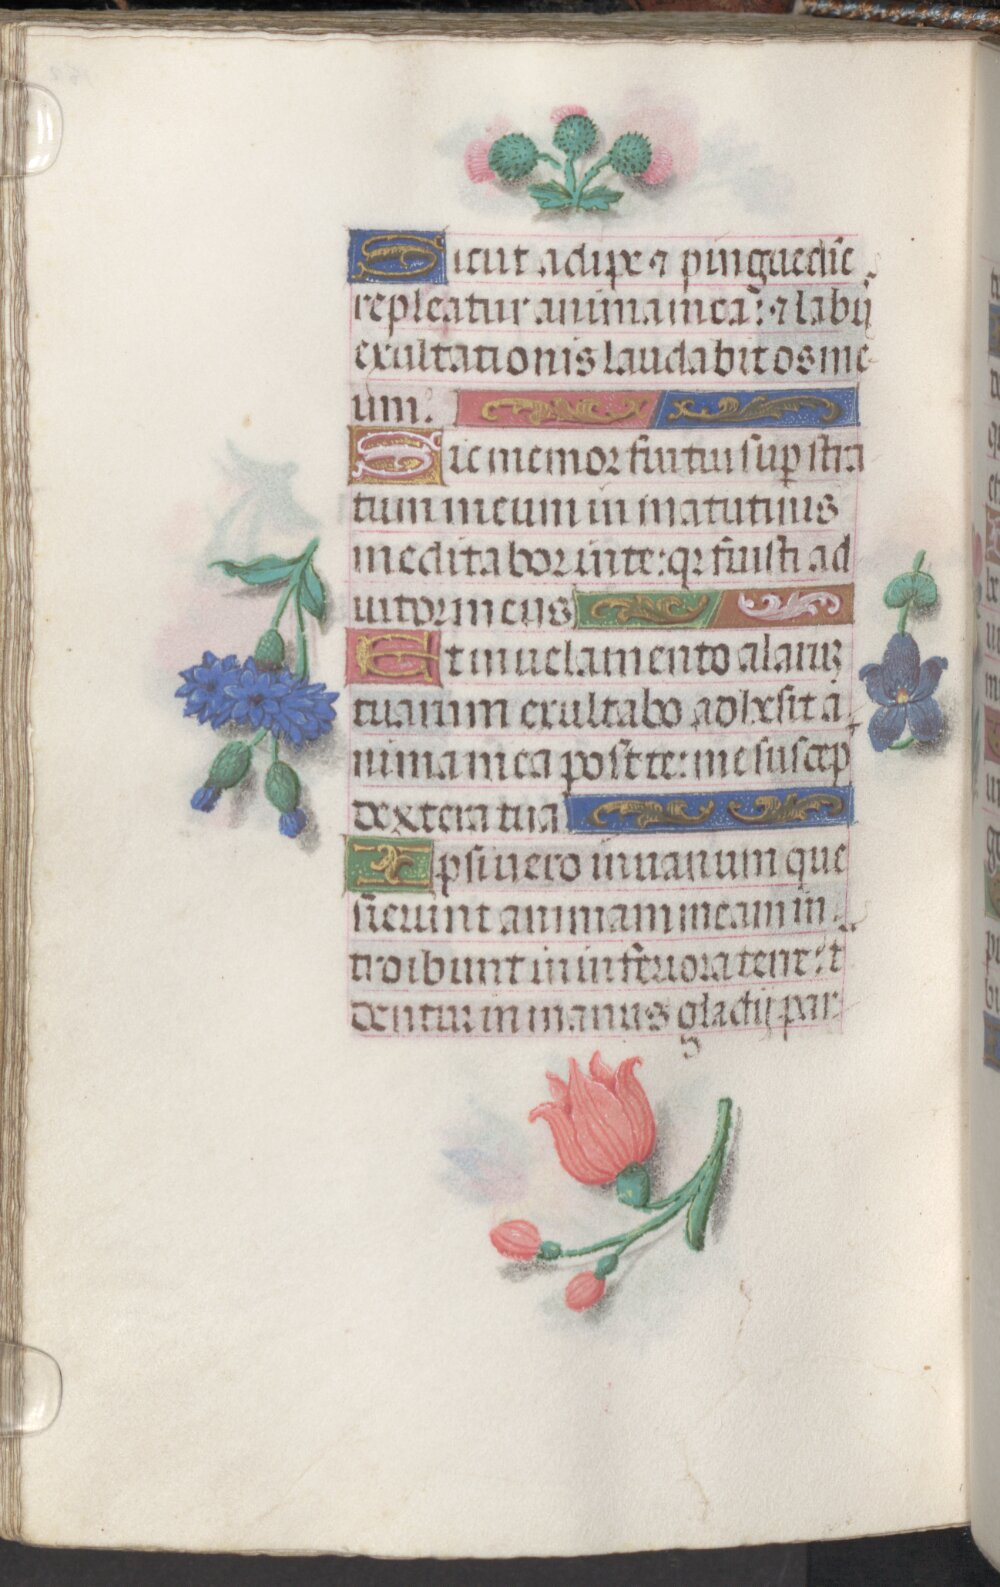 Sicut adipe ⁊ pinguedīe
repleatur anima mea: ⁊ labij
exultationis laudabit os me
um.
Sic memor fui tui sup stra
tum meum in matutinis
meditabor in te: qꝛ fuisti ad
iutor meus
Et in uelamento alarū
tuarum exultabo adhesit a
nima mea post te: me suscep
dextera tua
Ipsi uero in uanum que
sierunt animam meam in
troibunt in inferiora terre: t
dentur in manus gladij par